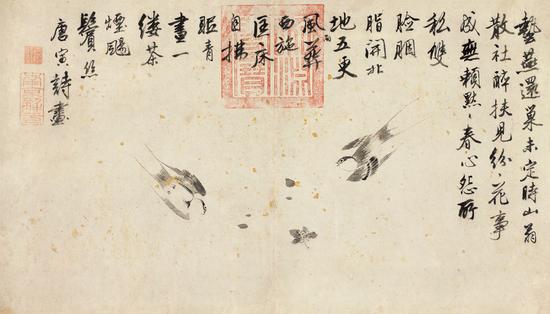 蟄燕還巢未定時山翁
散社醉扶兒紛々花事
成無賴黙々春心怨所
私雙
臉胭
脂開北
地五更
風雨葬
西施
匡床
自拂
眠青
晝一
縷茶
煙颺
鬢絲
唐寅詩畫